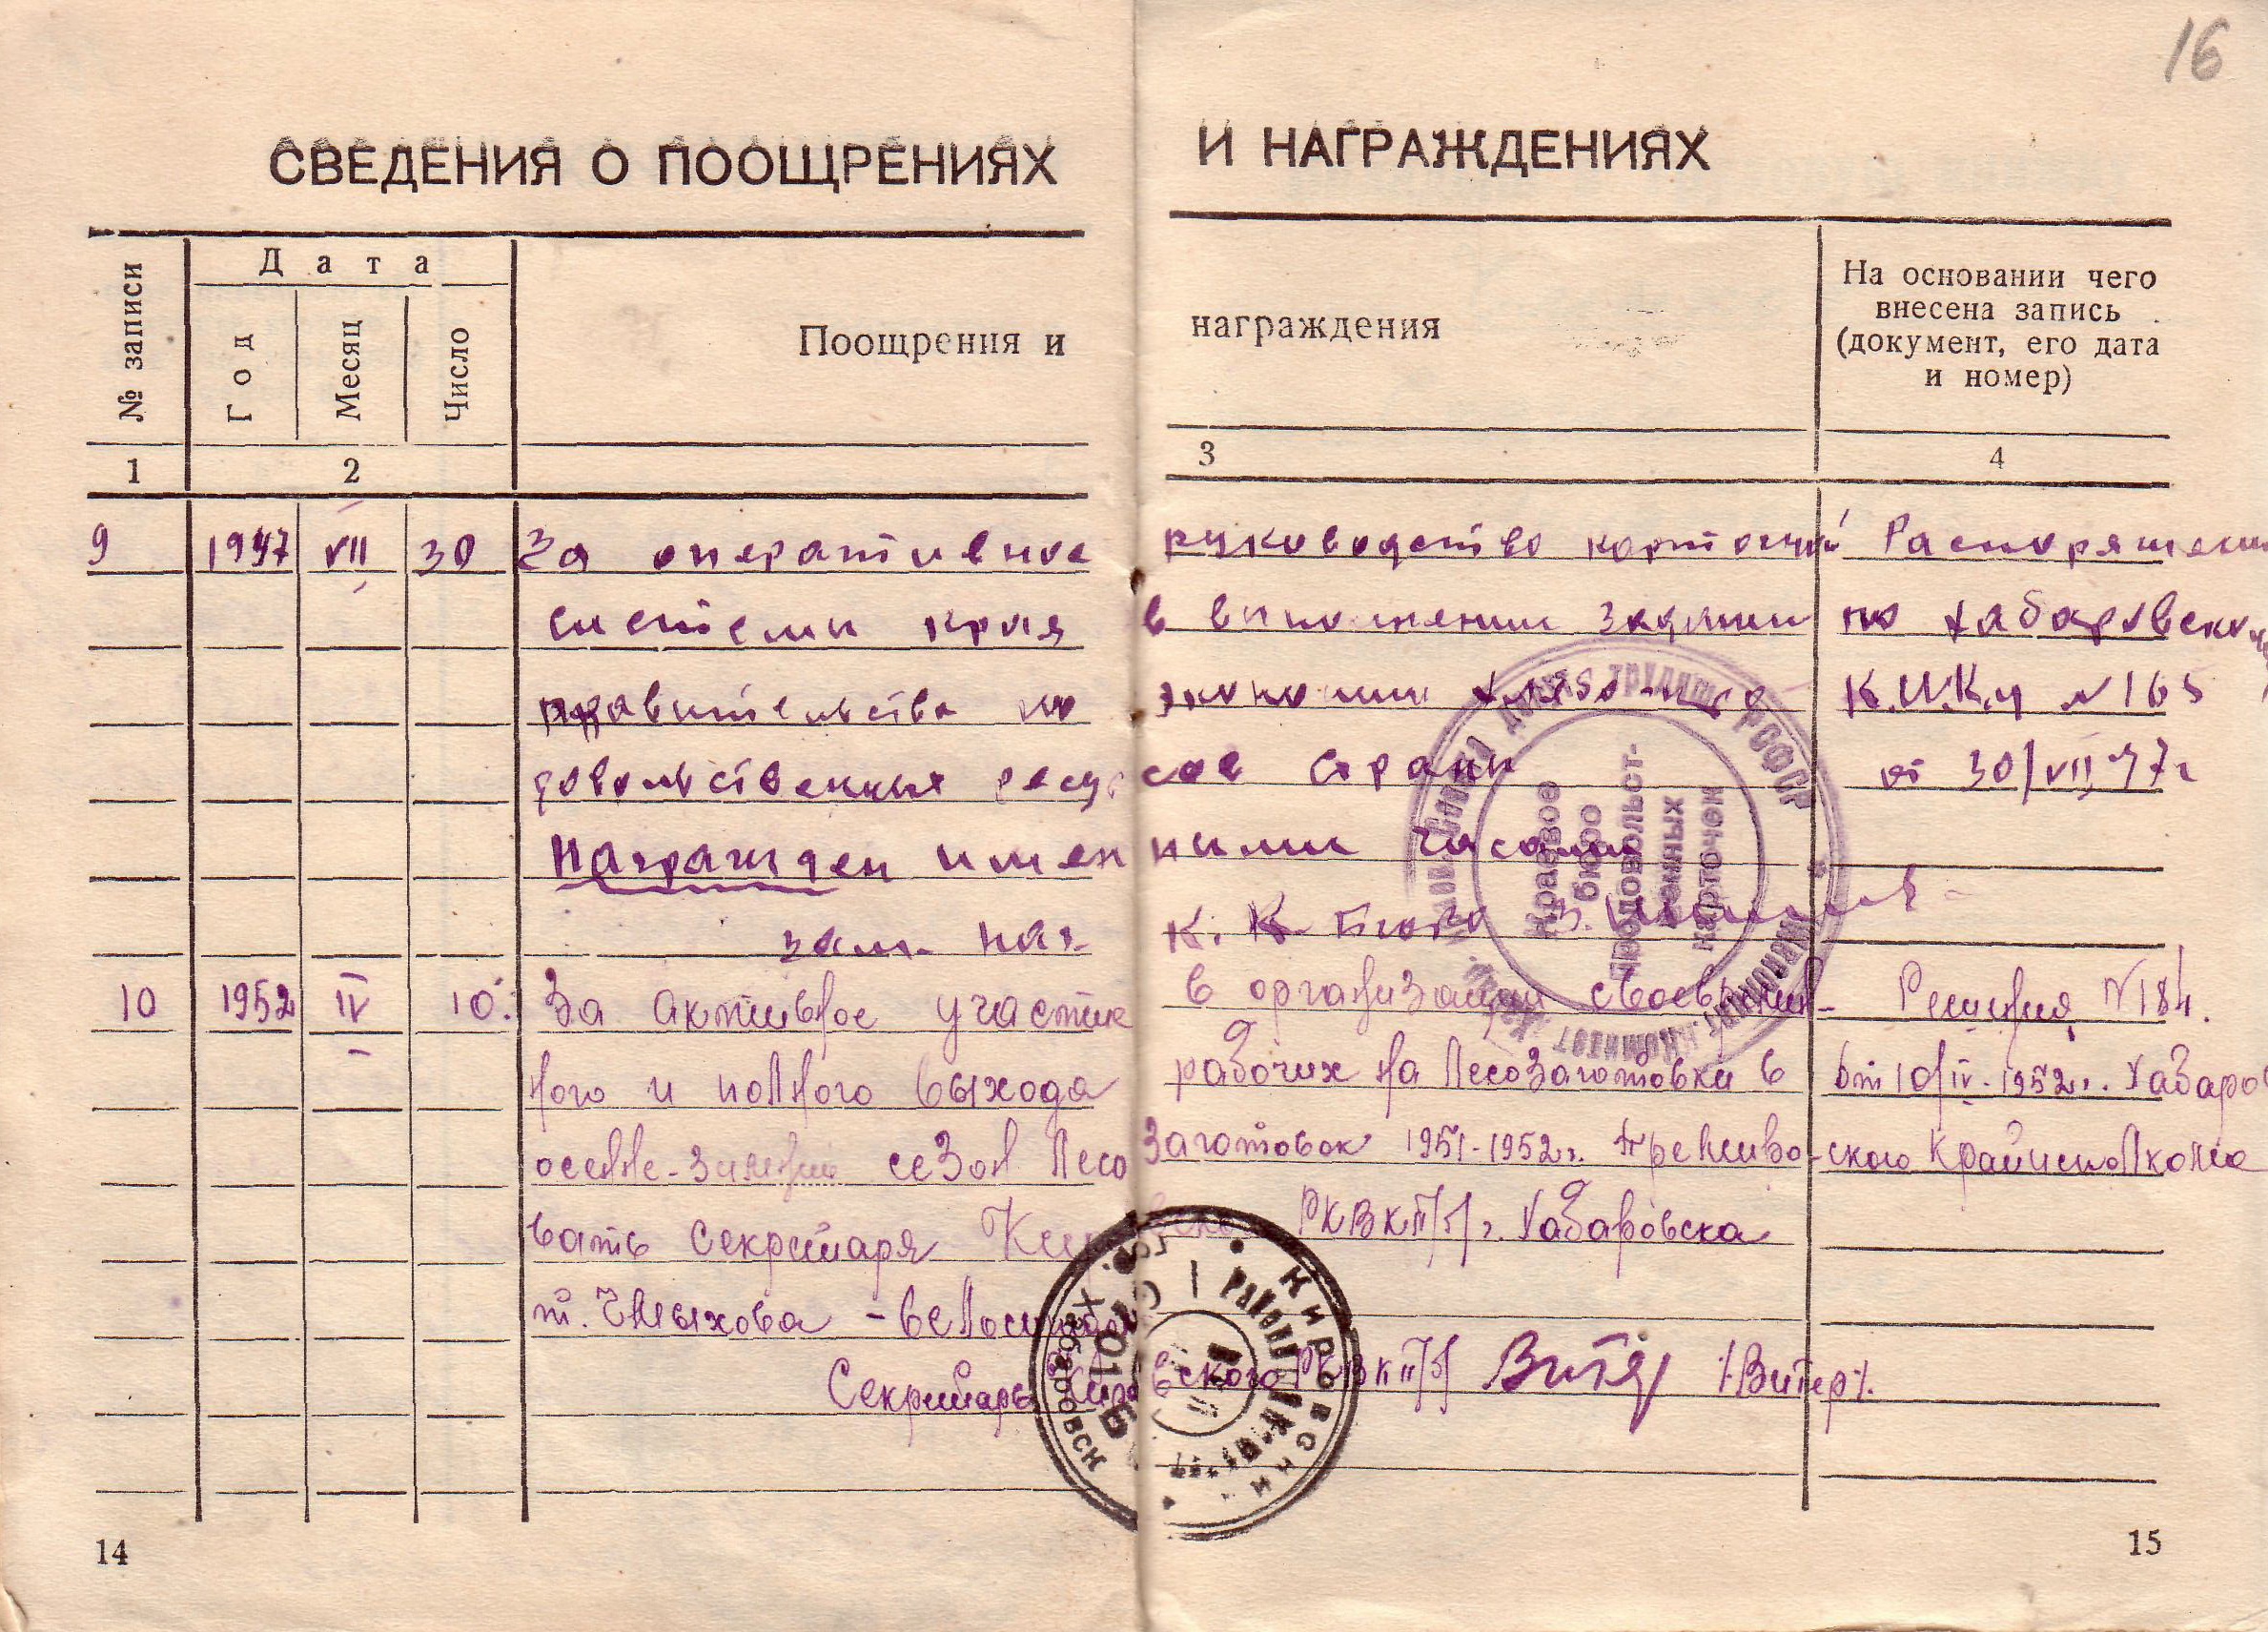 16
СВЕДЕНИЯ О ПООЩРЕНИЯХ И НАГРАЖДЕНИЯХ
№ записи
Дата
Год
Месяц
Число
Поощрения и награждения
На основании чего
внесена запись
(документ, его дата
и номер)
1 2 3 4
9 1947 VII 30 За оперативное руководство карточной Распоряжение
системы края в выполнении задания по Хабаровскому
правительства по экономии хлеба и про К.И.К.у №165
довольственных ресурсов страны от 30/VII 47г
Награжден именными часами
зам. нач. К. К. Бюро
10 1952 IV 10. За активное участие в организации своевремен- Решения №184.
ного и полного выхода рабочих на лесозаготовки в от 10/IV-1952г. Хабаров
осенне-зимний сезон лесозаготовок 1951-1952г. премиро- ского Крайисполкома
вать секретаря Кировского РКВКП/б/ г. Хабаровска
т. Чмыхова - велосипедом
Секретарь Кировского РКВКП/б/ Витер /Витер/.
Краевое
бюро
продовольст-
венных
карточек
Кировский
Хабаровск
14 15